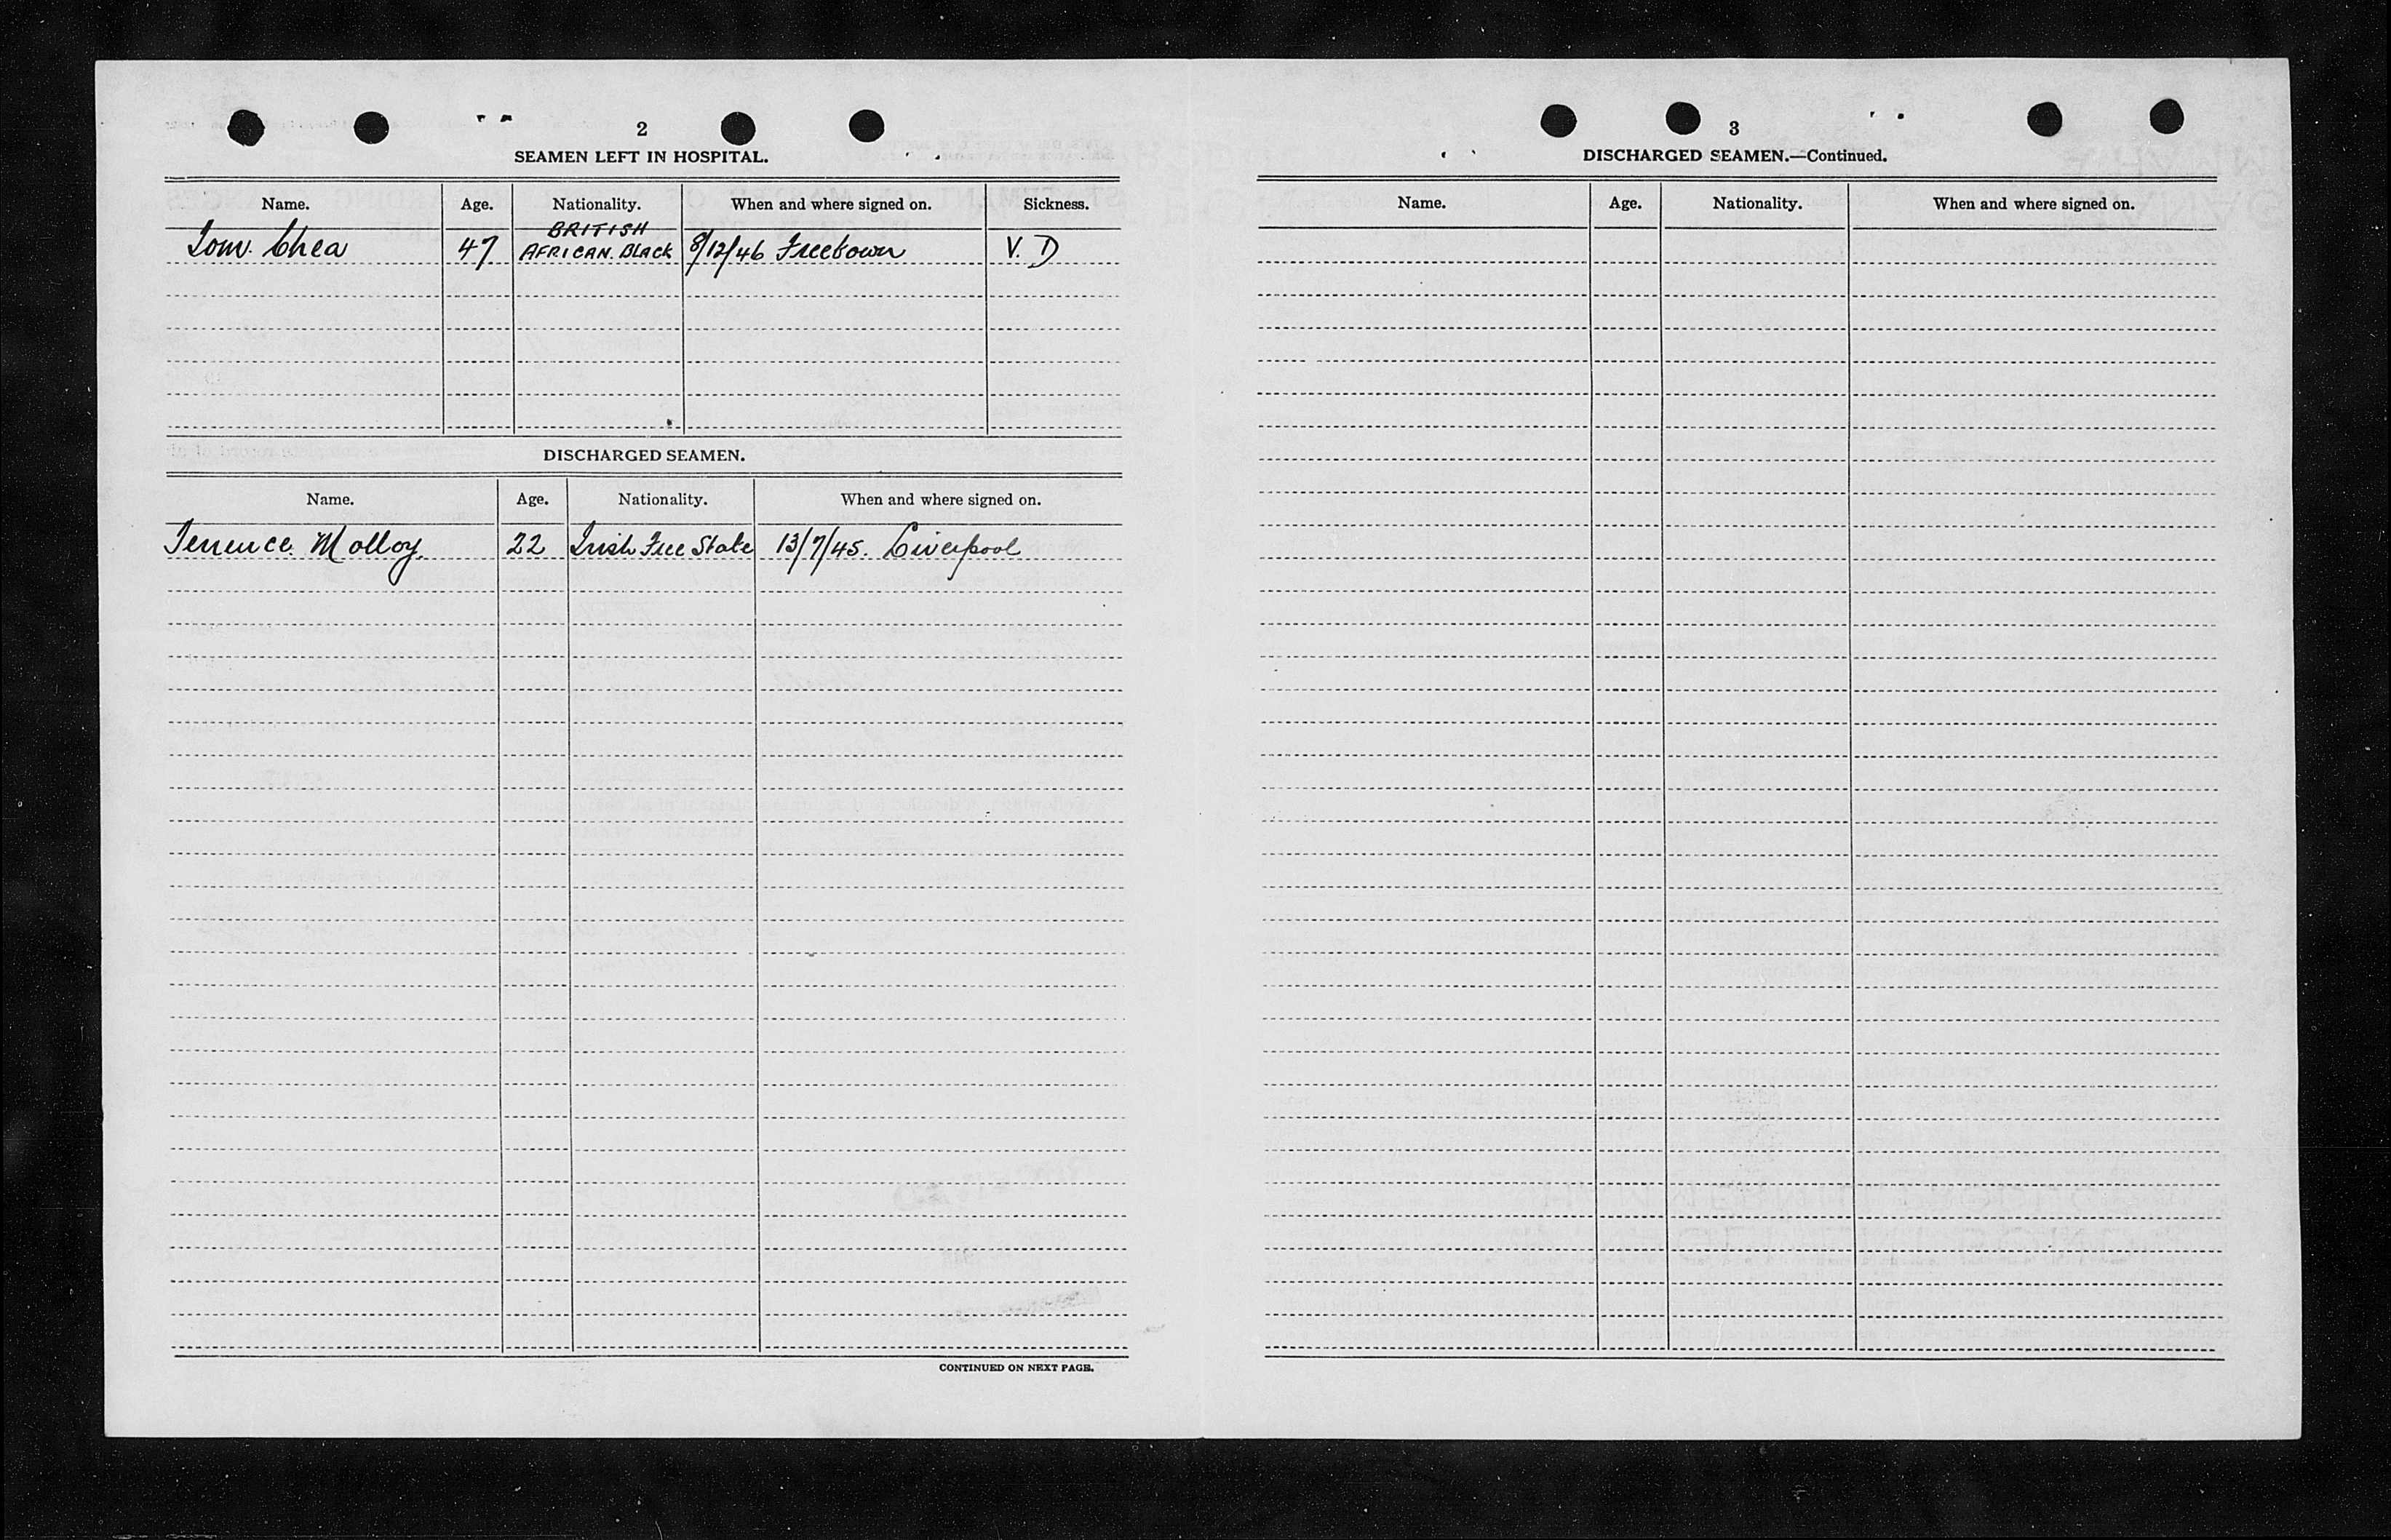 2
SEAMEN LEFT IN HOSPITAL.
Name. Age. Nationality. When and where signed on. Sickness.
BRITISH
Tom. Chea 47 AFRICAN. BLACK 8/12/46 Freetown V. D
DISCHARGED SEAMEN.
Name. Age. Nationality. When and where signed on.
Terence. Molloy. 22 Irish Free State 13/7/45. Liverpool
CONTINUED ON NEXT PAGE.
3
DISCHARGED SEAMEN.—Continued.
Name. Age. Nationality. When and where signed on.